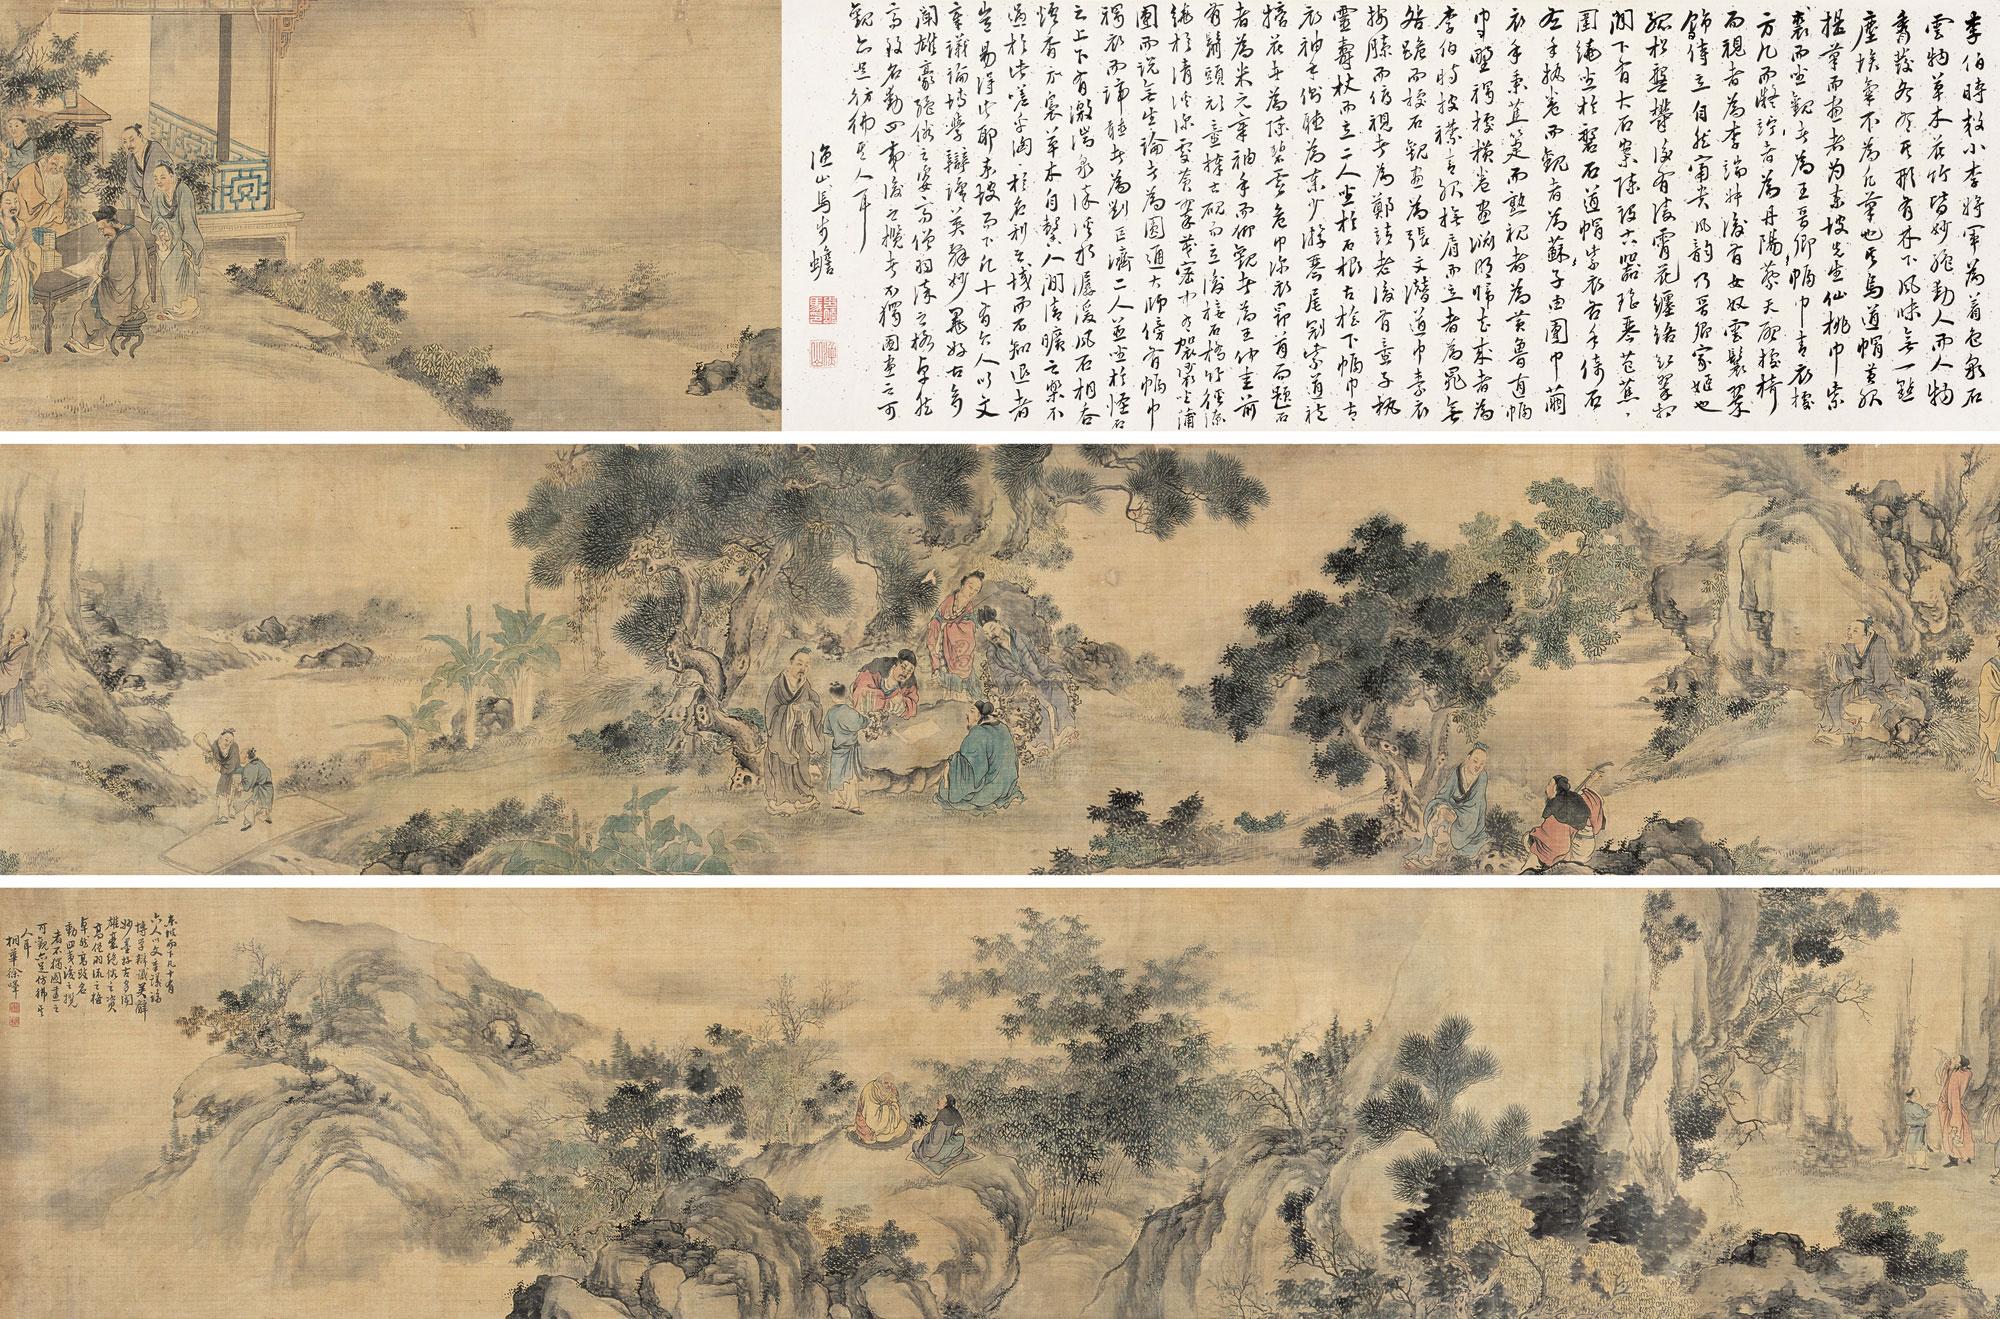 李伯時效小李將軍為着色泉石
雲物草木花竹皆妙絕動人而人物
秀發各肖其形有林下風味無一點
塵埃氣不為凡筆也其烏道帽黃服
捉筆而書者為東坡先生仙桃巾紫
裘而坐觀者為王晉卿幅巾青衣據
方几而凝竚者為丹陽蔡天啟捉椅
而視者為李端叔後有女奴雲鬟翠
飾侍立自然富貴風韻乃晉卿家姬也
孤松盤鬱後有凌霄花纏絡紅翠相
間下有大石案陳設古器瑤琴芭蕉
圍繞坐於磐石道帽紫衣右手倚石
左手執卷而觀者為蘇子由團巾繭
衣手秉蕉箑而熟視者為黃魯直幅
巾野褐據橫卷畫淵明歸去來者為
李伯時披襟青服撫肩而立者為晁無
咎跪而捉石觀畫為張文潛道巾素衣
按膝而俯視者為鄭靖老後有童子執
靈壽杖而立二人坐於石根古檜下幅巾青
衣袖手側聽為秦少游琴尾冠紫道服
摘阮者為陳碧虛唐巾深衣昂首而題石
者為米元章袖手而仰觀者為王仲至前
有鬅頭頑童捧古硯而立後接石橋竹徑繚
繞於清溪深處翠陰茂密中有袈裟坐蒲
團而說無生論者為圓通大師傍有幅巾
褐衣而諦聽者為劉巨濟二人並坐於怪石
之上下有激湍流水潺湲風石相吞
爐煙方裊草木自馨人間清曠之樂不
過於此嗟乎洶於名利之域而不知退者
豈易得此耶東坡而下凡十有六人以文
章議論博學辯識英辭妙墨好古多
聞雄豪絕俗之姿高僧羽流之傑卓然
高致名動四夷後之攬者不獨圖畫之可
觀亦足彷彿其人耳
漁山馬步蟾
東坡而下凡十有
六人以文章議論
博學辯識英辭
妙墨好古多聞
雄豪絕俗之資
高僧羽流之傑
卓然高致名
動四夷後之覽
者不獨圖畫之
可觀亦足彷彿其
人耳
桐華徐暉